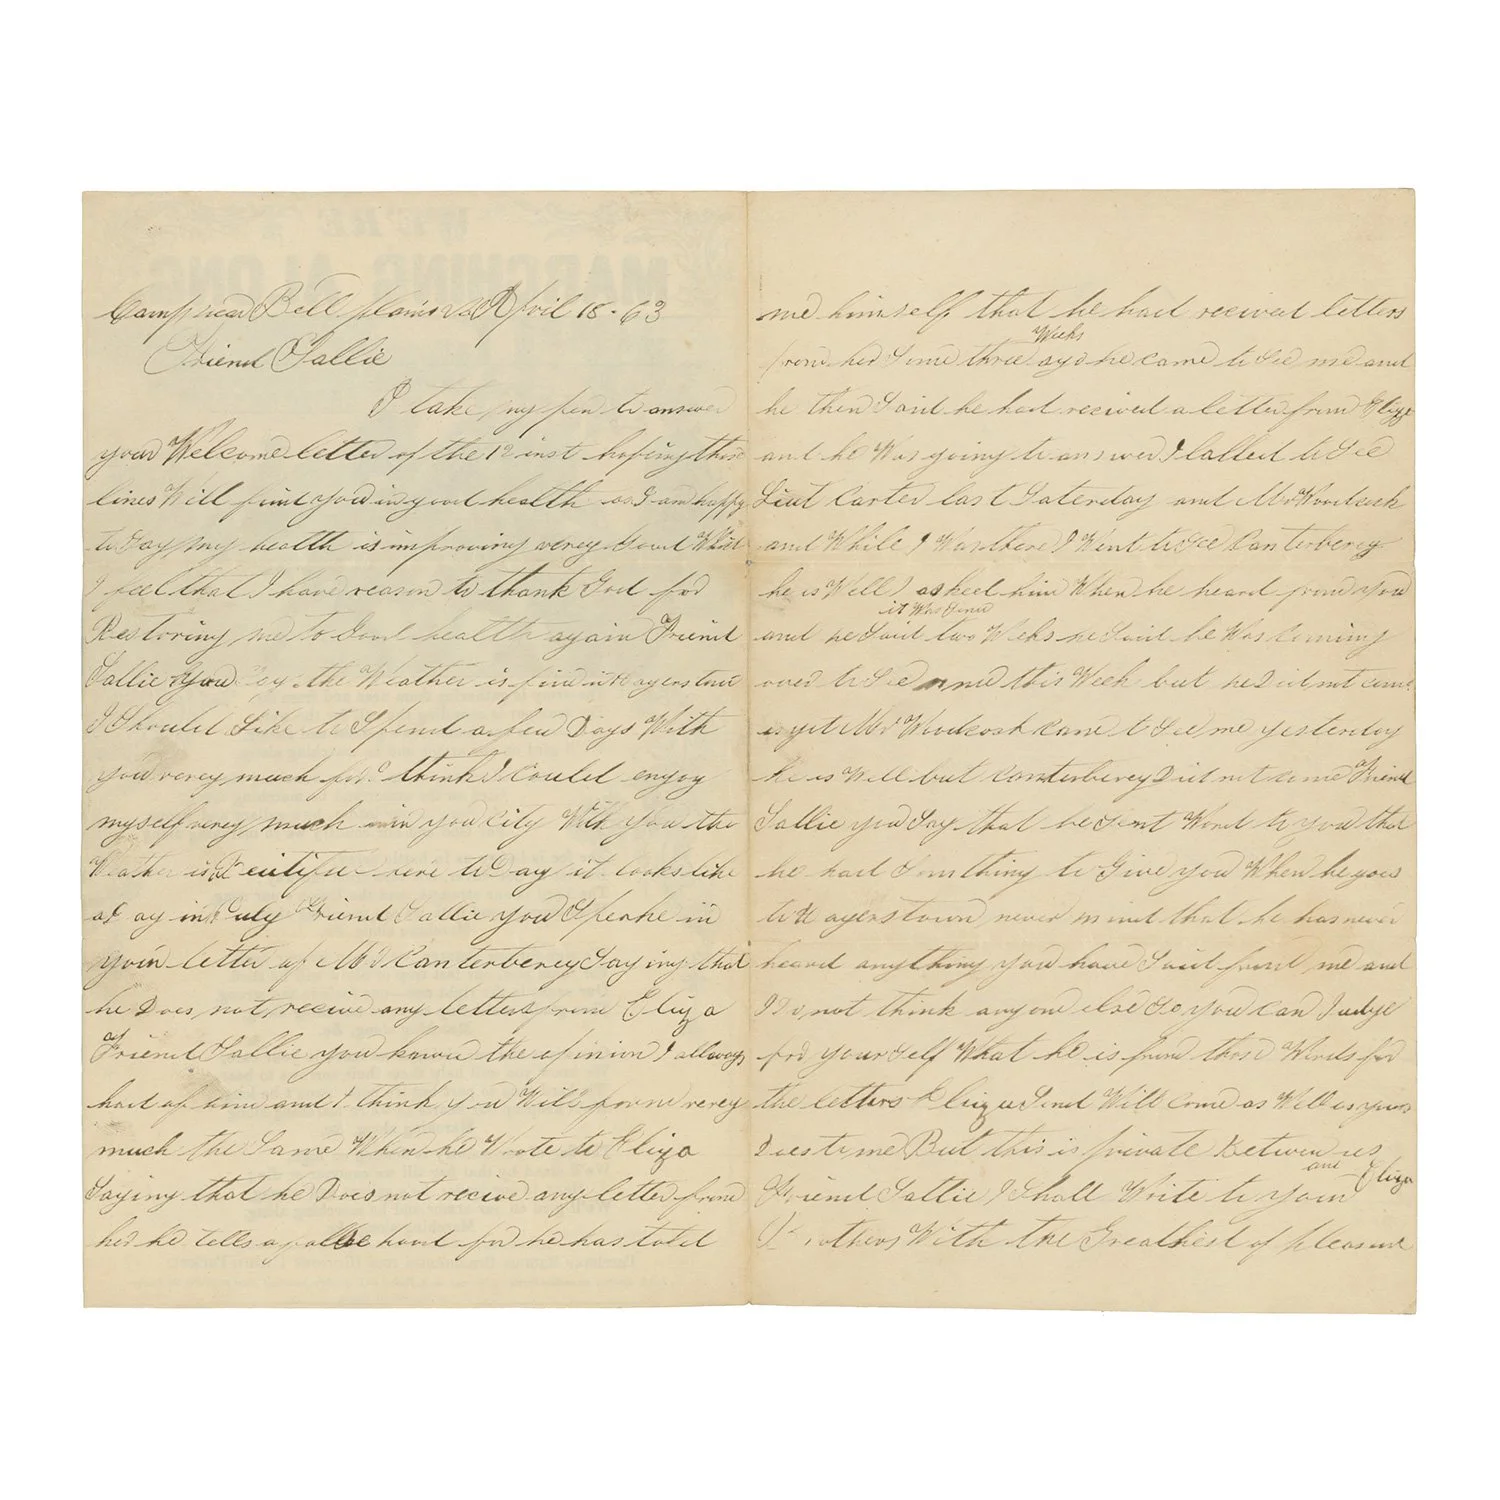 Camp near Bell plains va April 18 - 63
Friend Sallie
I take my pen to answer
your Welcome letter of the 12 inst hoping these
lines Will find you in good health as I am happy
to Say my health is improving verey Good Which
I feel that I have reason to thank God for
Restoring me to Good health again Friend
Sallie you Say the Weather is fine in Hagerstown
I Should Like to Spend a few Days With
you verey much for I think I could enjoy
myself verey much in you City With you the
Weather is Beutiful here to Day it looks like
a Day in July Friend Sallie you Speake in
your letter of Mr Canterberey Saying that
he Does not recive any letters from Eliza
Friend Sallie you know the opinion I allways
had of him and I think you Will form verey
much the Same When he Wrote to Eliza
Saying that he Does not recive any letter from
her he tells a palbe hood for he has told
me himself that he had recived letters
from her Some three Weeks ago he came to See me and
he then Said he had recived a letter from Eliza
and he Was going to answer I Called to See
Liut Carter last Saterday and Mr Woodcock
and While I Was there I Went to See Canterberey
he is Well I asked him When he heard from you
and he Said it Was Some two Weeks he Said he Was Coming
over to See me this Week but he Did not come
as yet Mr Woodcock came to See me yesterday
he is Well but Canterberey Did not come Friend
Sallie you Say that he Sent Word to you that
he had Somthing to Give you When he goes
to Hagerstown never mind that he has never
heard anything you have Said from me and
I Do not think any one else So you can Judge
for your Self What he is from those Words for
the letters Eliza Send Will Come as Well as yours
Does to me But this is private Between us and Eliza
Friend Sallie I Shall Write to your
Brothers With the Greathest of pleasure